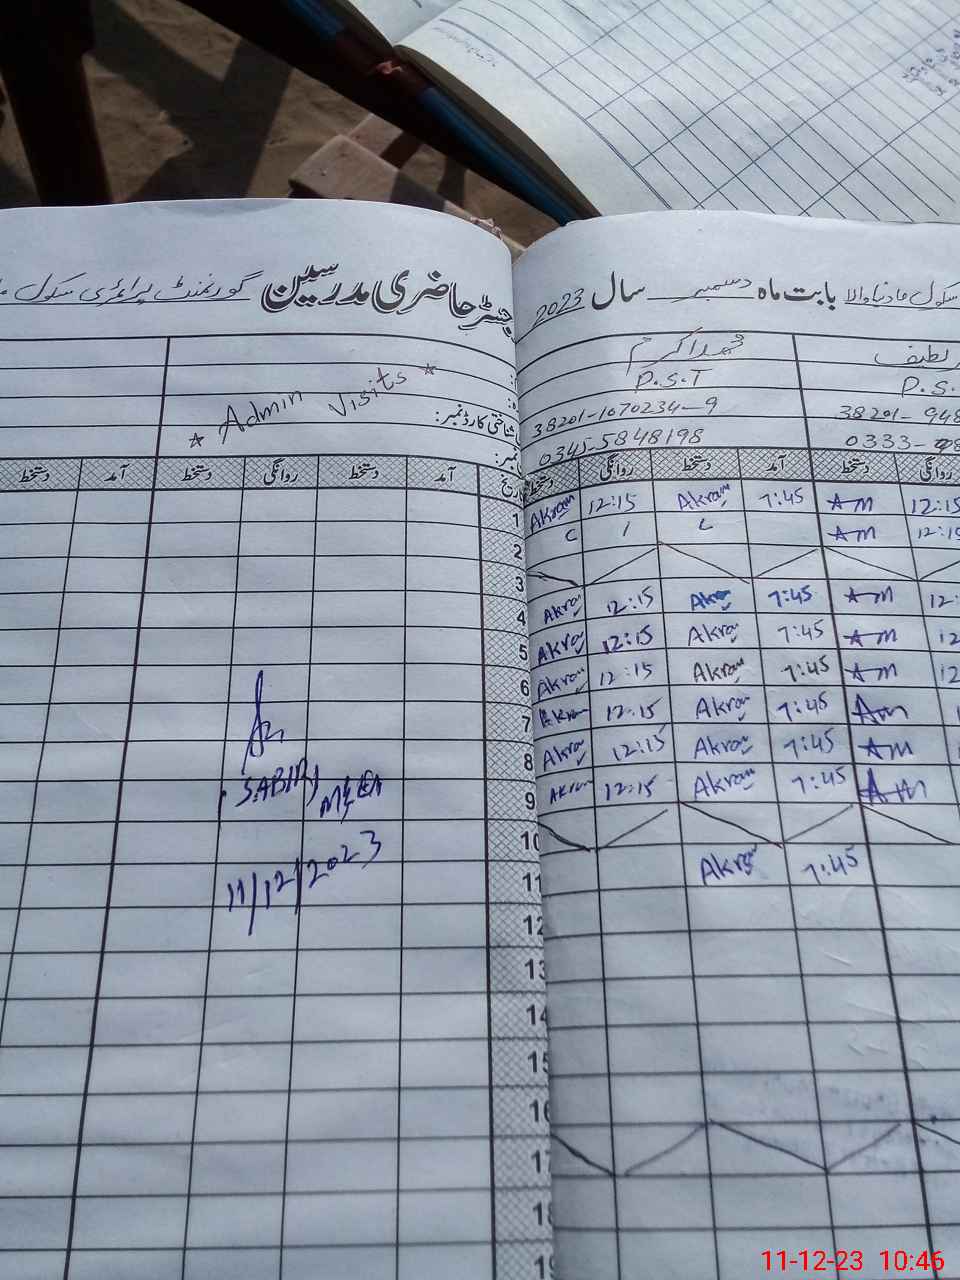 رجسٹر حاضری مدرسین گورنمنٹ پرائمری سکول
سکول بابت ماہ دسمبر سال 2023
★ Admin Visits ★
محمد اکرم
لطیف
P.S.T
P.S.
شناختی کارڈ نمبر:
38201-1070234-9
38201-948
نمبر:
0345-5848198
0333-
دستخط آمد دستخط روانگی دستخط آمد تاریخ دستخط روانگی دستخط آمد دستخط روانگی
1 Akram 12:15 Akram 7:45 Am 12:15
2 C / L Am 12:15
3
4 Akram 12:15 Akram 7:45 Am 12:
5 Akram 12:15 Akram 7:45 Am 12
6 Akram 12:15 Akram 7:45 Am 12
7 Akram 12:15 Akram 7:45 Am
8 Akram 12:15 Akram 7:45 Am
9 Akram 12:15 Akram 7:45 Am
SABIR
10
11 Akram 7:45
11/12/2023
12
13
14
15
16
17
18
19
11-12-23 10:46